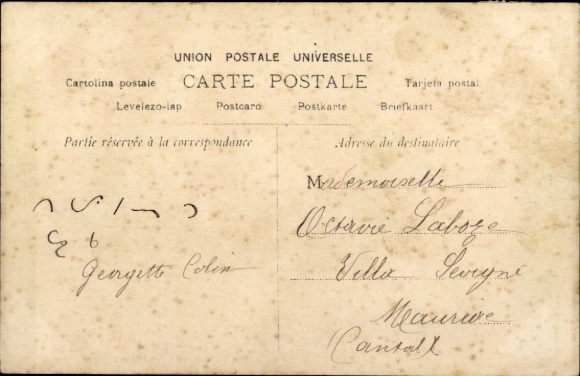 UNION POSTALE UNIVERSELLE
Cartolina postale CARTE POSTALE Tarjeta postal
Levelezo-lap Postcard Postkarte Briefkaart
Partie réservée à la correspondance
Georgette Colin
Adresse du destinataire
Mademoiselle
Octavie
Villa Sévigné
Cantal